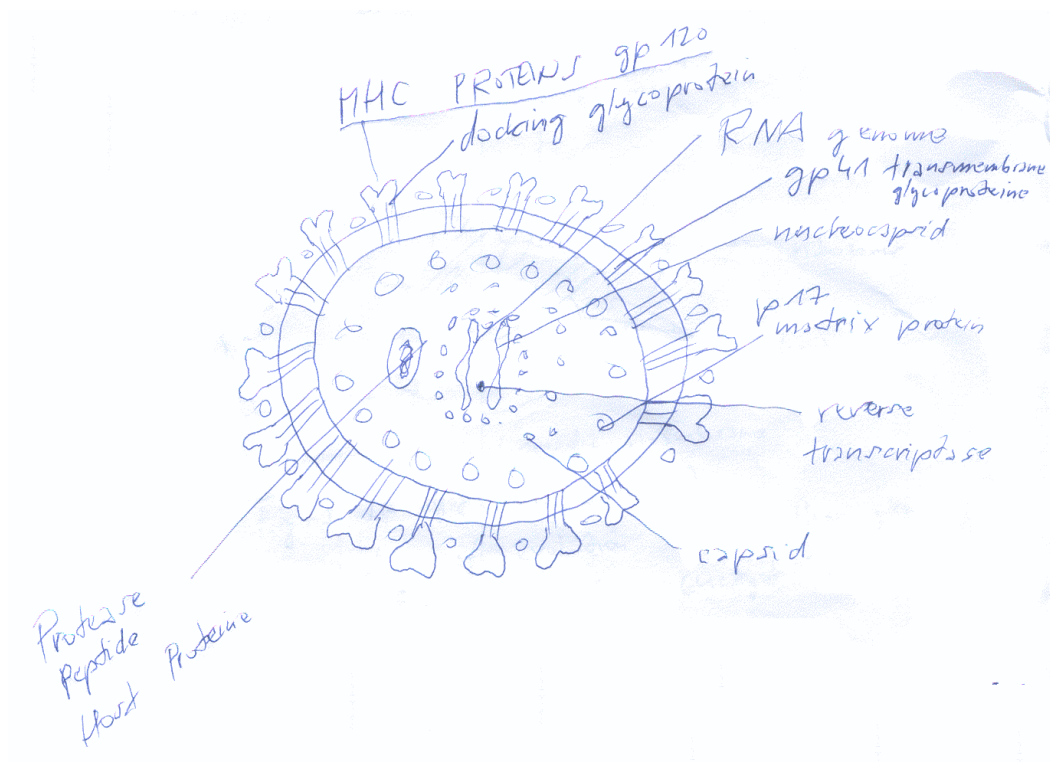 MHC PROTEINS gp 120
docking glycoprotein
RNA genome
gp41 transmembrane
glycoproteine
nucleocapsid
p17
matrix protein
reverse
transcriptase
capsid
Protease
Peptide
Host Proteine